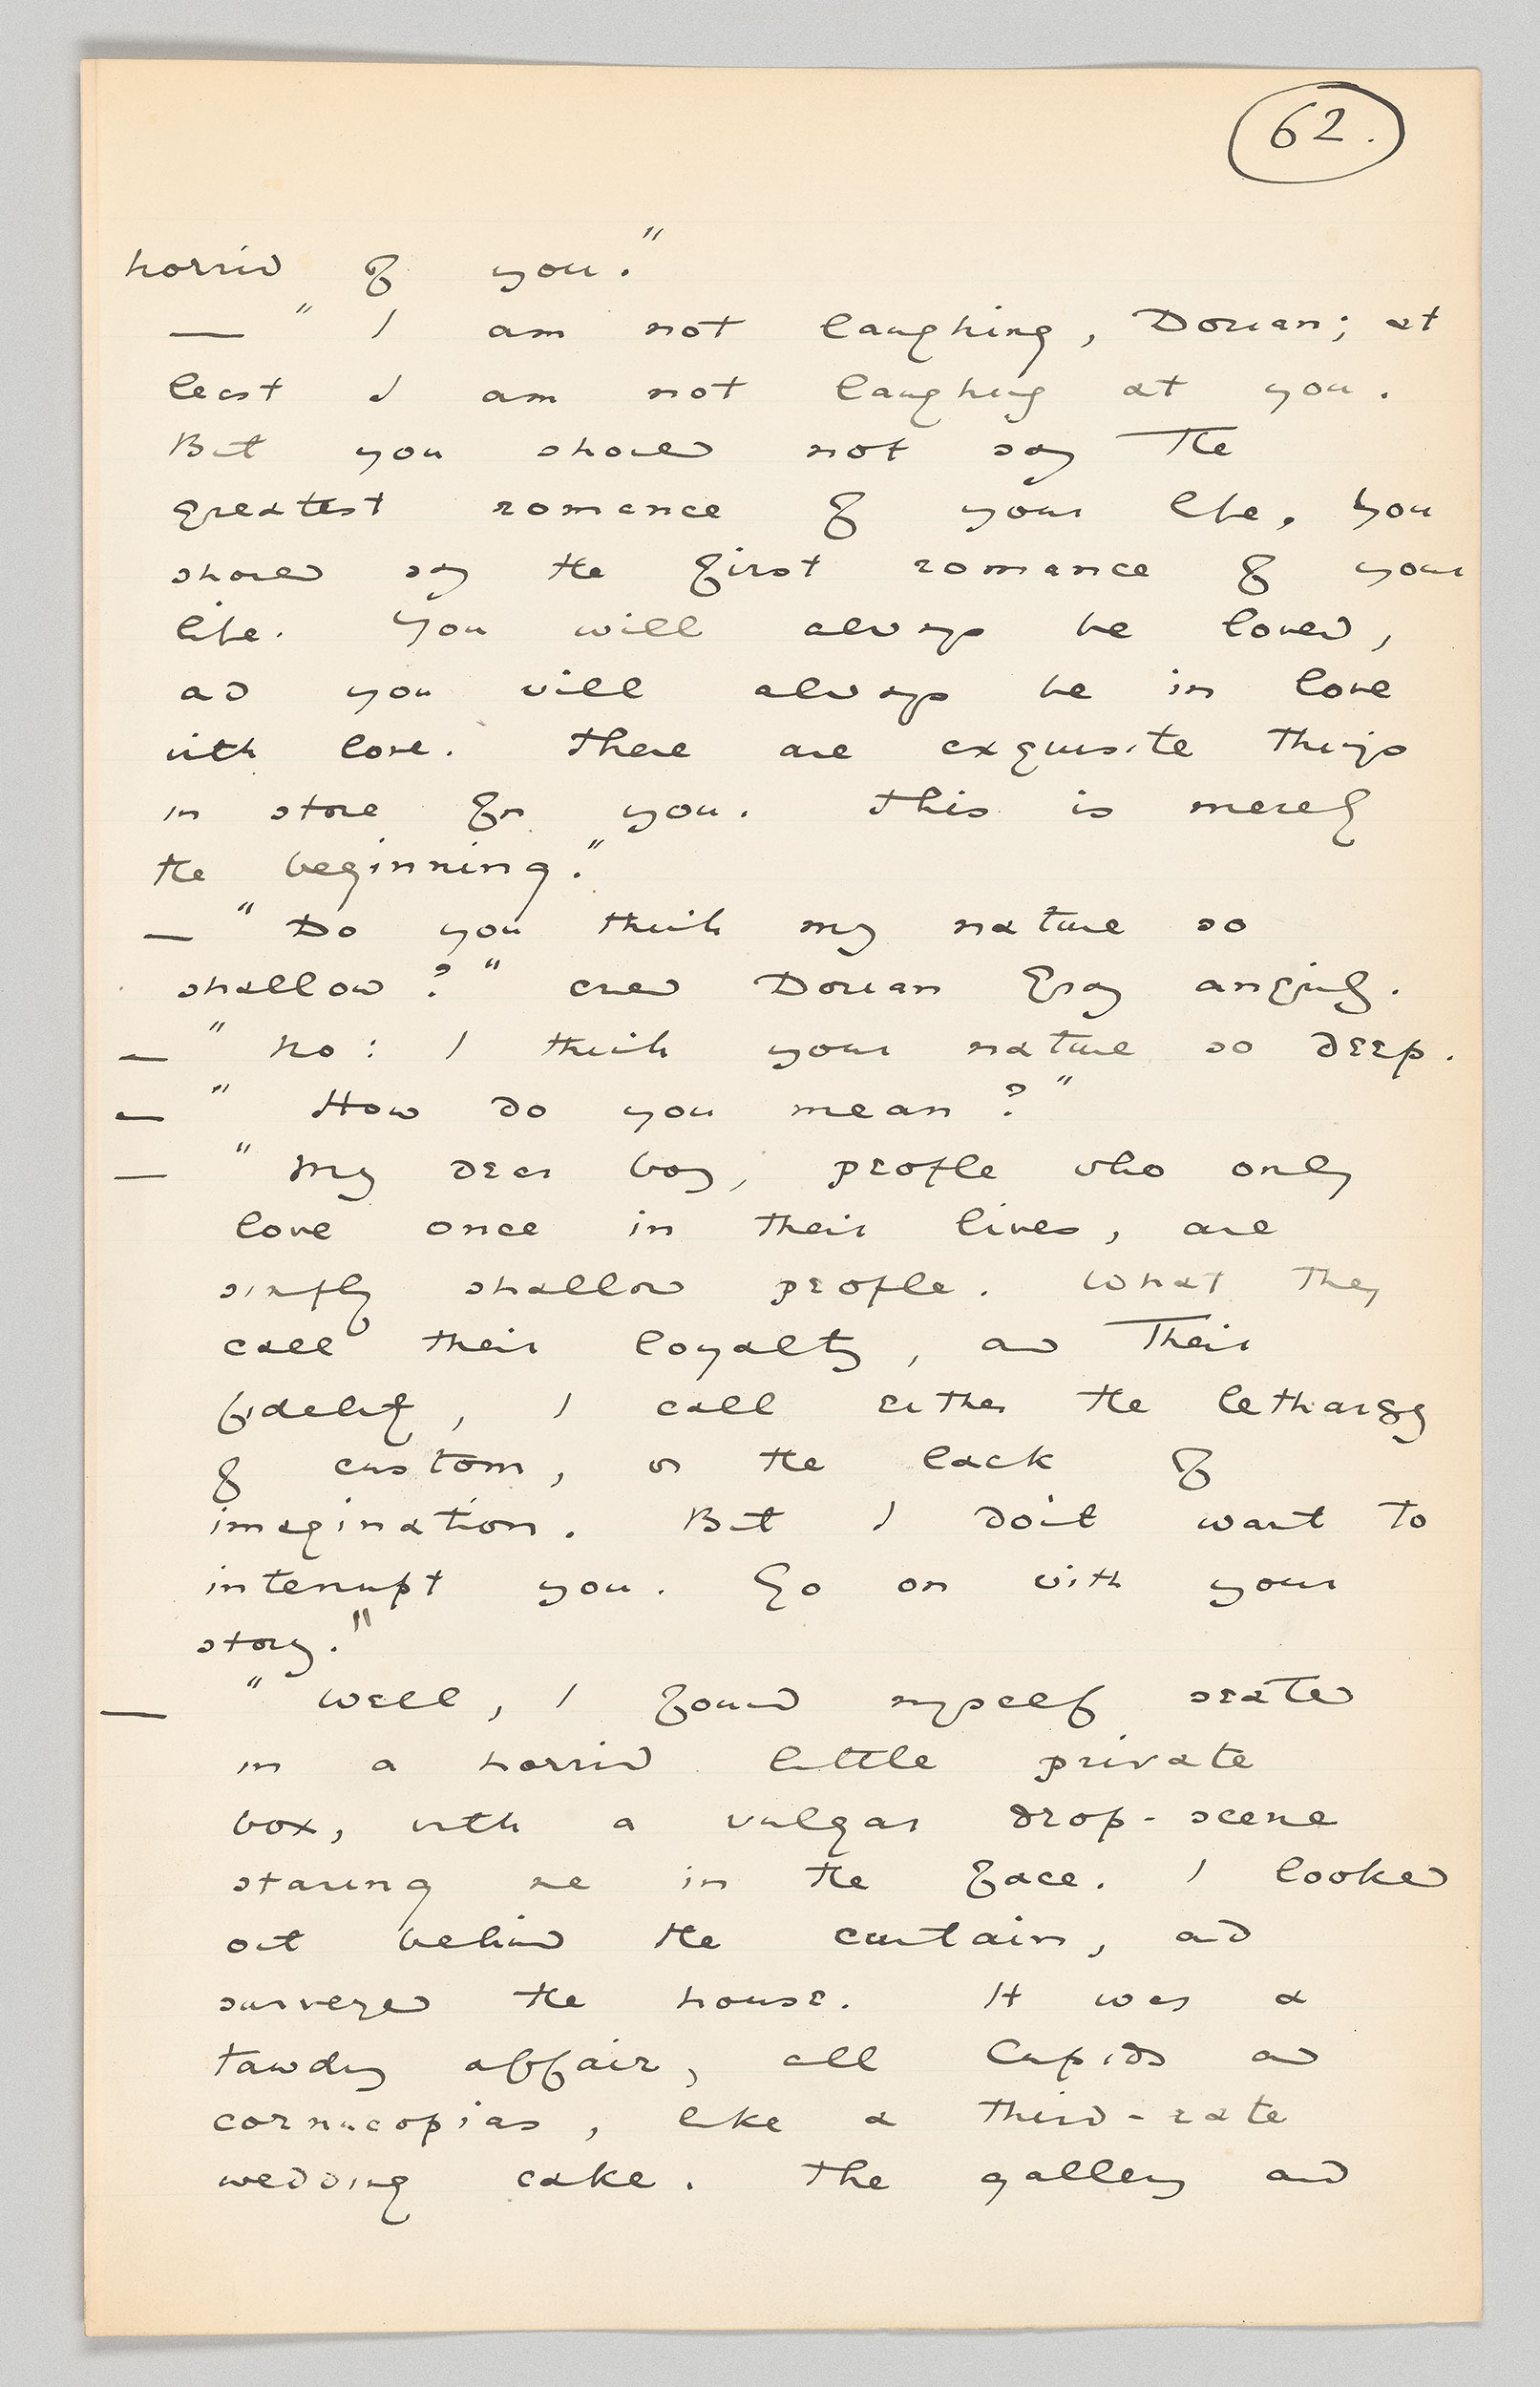 62.
horrid of you."
— " I am not laughing, Dorian; at
least I am not laughing at you.
But you should not say the
greatest romance of your life, you
should say the first romance of your
life. You will always be loved,
and you will always be in love
with love. There are exquisite things
in store for you. This is merely
the beginning."
— " Do you think my nature so
shallow?" cried Dorian Gray angrily.
— " No: I think your nature so deep.
— " How do you mean?"
— " My dear boy, people who only
love once in their lives, are
simply shallow people. What they
call their loyalty, and their
fidelity, I call either the lethargy
of custom, or the lack of
imagination. But I don't want to
interrupt you. Go on with your
story."
— " Well, I found myself seated
in a horrid little private
box, with a vulgar drop-scene
staring me in the face. I looked
out behind the curtain, and
surveyed the house. It was a
tawdry affair, all Cupids and
cornucopias, like a third-rate
wedding cake. The gallery and